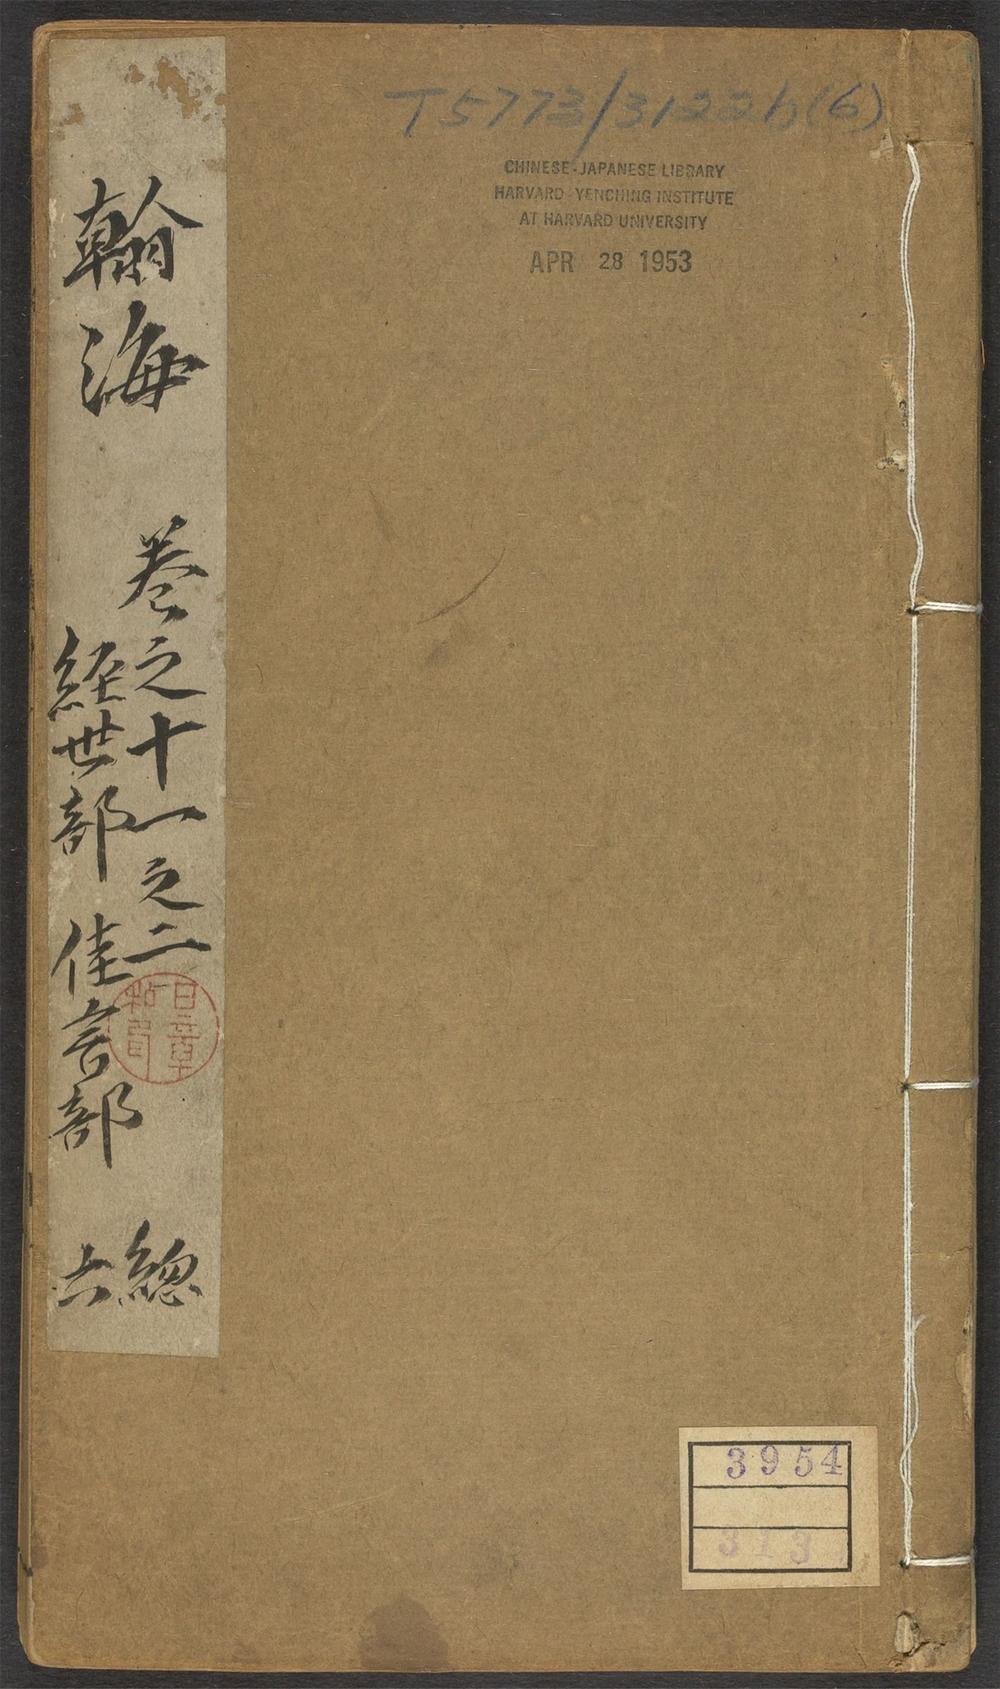 T5773/3122b(6)
CHINESE-JAPANESE LIBRARY
HARVARD-YENCHING INSTITUTE
AT HARVARD UNIVERSITY
APR 28 1953
翰海
巻之十一之二
經世部 佳言部
總
六
3954
313